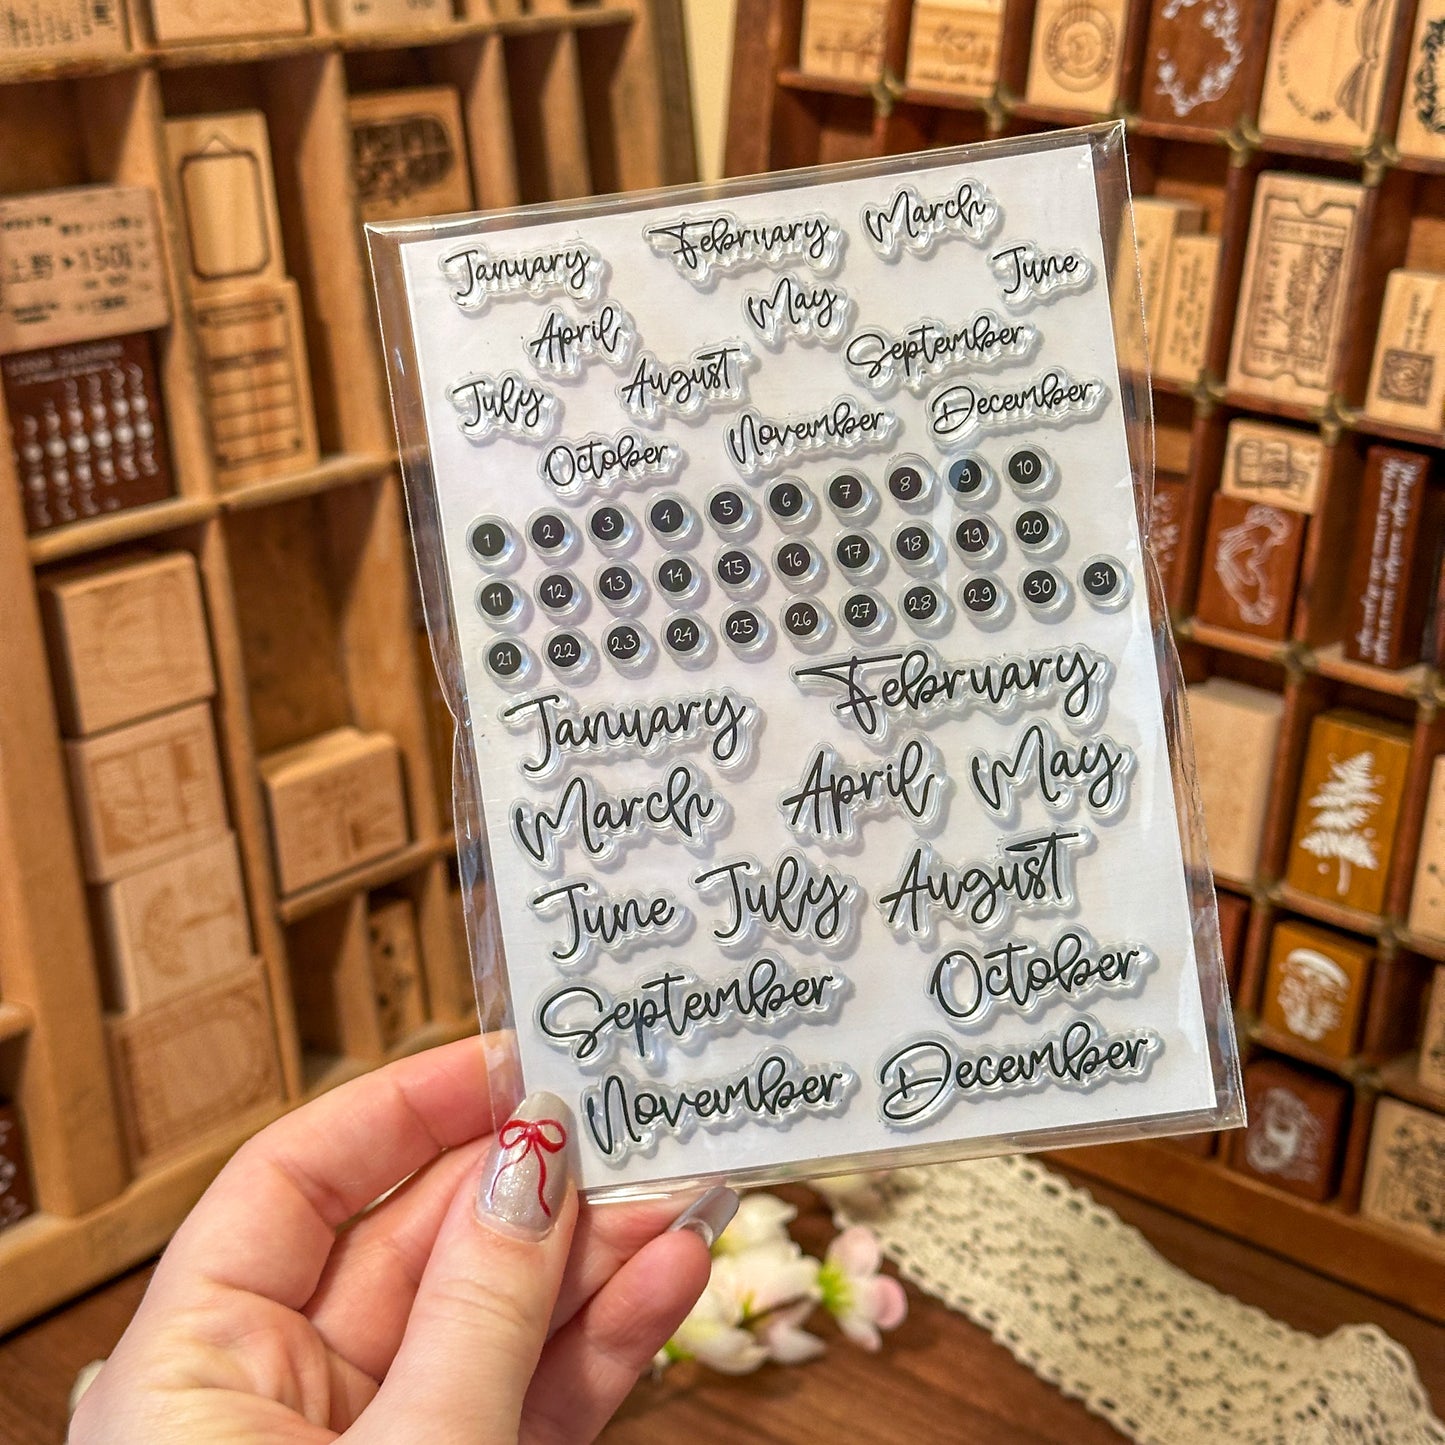 January February March
April May June
July August September
October November December
1 2 3 4 5 6 7 8 9 10
11 12 13 14 15 16 17 18 19 20
21 22 23 24 25 26 27 28 29 30 31
January February
March April May
June July August
September October
November December
上野 ▶ 150